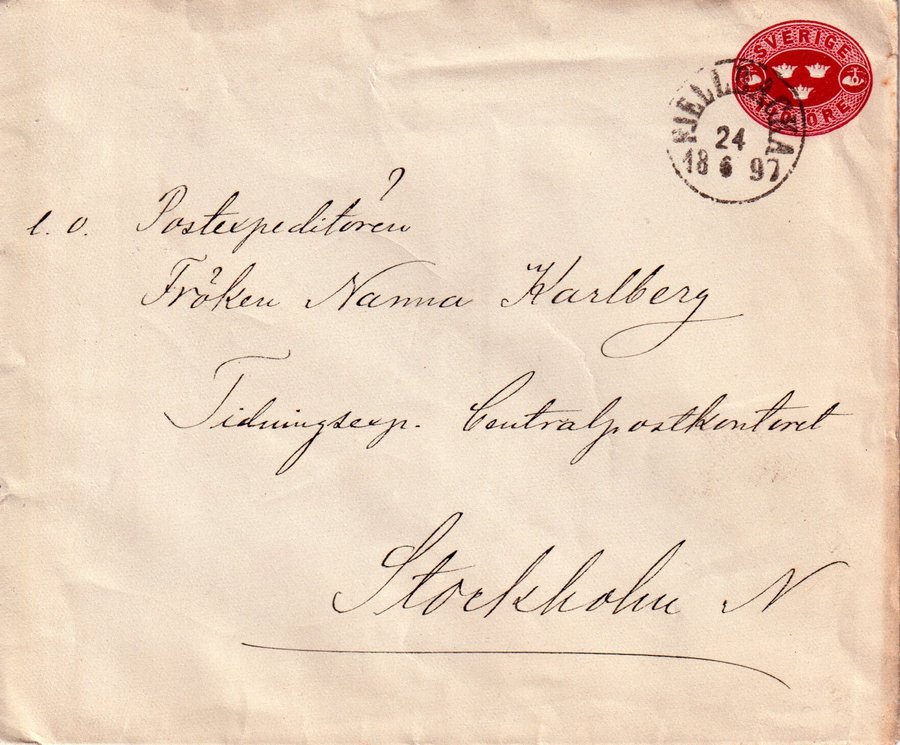 SVERIGE
ÖRE
FJELLBACKA
24
18 6 97
t. o. Postexpeditören
Fröken Nanna Karlberg
Tidningsexp. Centralpostkontoret
Stockholm N